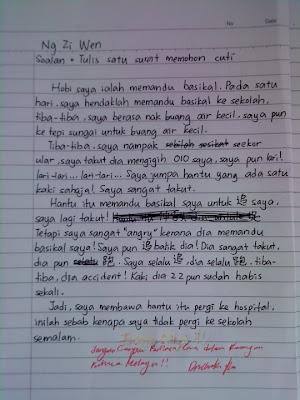 No. Date
Ng Zi Wen
Soalan • Tulis satu surat memohon cuti
Hobi saya ialah memandu basikal. Pada satu
hari, saya hendaklah memandu basikal ke sekolah,
tiba-tiba, saya berasa nak buang air kecil, saya pun
ke tepi sungai untuk buang air kecil.
Tiba-tiba, saya nampak seekor
ular, saya takut dia mengigih 010 saya, saya pun lari!
lari-lari... lari-lari... Saya jumpa hantu yang ada satu
kaki sahaja! Saya sangat takut.
Hantu itu memandu basikal saya untuk 追 saya,
saya lagi takut!
Tetapi saya sangat "angry" kerana dia memandu
basikal saya! Saya pun 追 balik dia! Dia sangat takut,
dia pun 跑. Saya selalu 追, dia selalu 跑, tiba-
tiba, dia accident! Kaki dia 22 pun sudah habis
sekali.
Jadi, saya membawa hantu itu pergi ke hospital,
inilah sebab kenapa saya tidak pergi ke sekolah
semalam.
Jangan Campur Bahasa Cina dalam Karangan
Bahasa Melayu!!